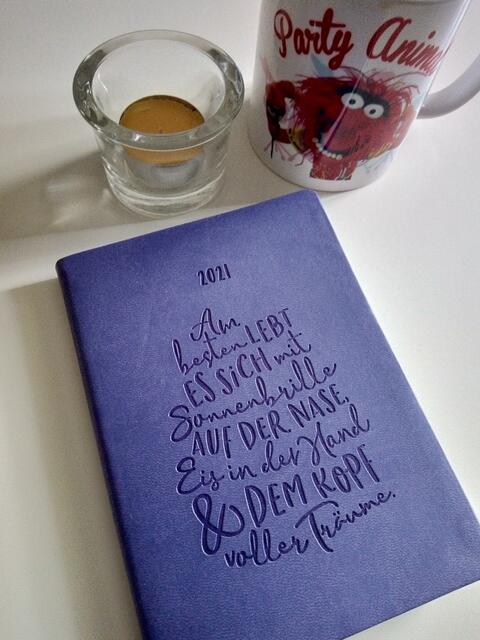 Party Anima
2021
Am
besten LEBT
ES SiCH mit
Sonnenbrille
AUF DER NASE,
Eis in der Hand
& DEM KOPF
voller Träume.